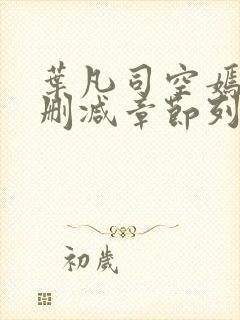 葉凡司空嫣
刪减章節列
初歲